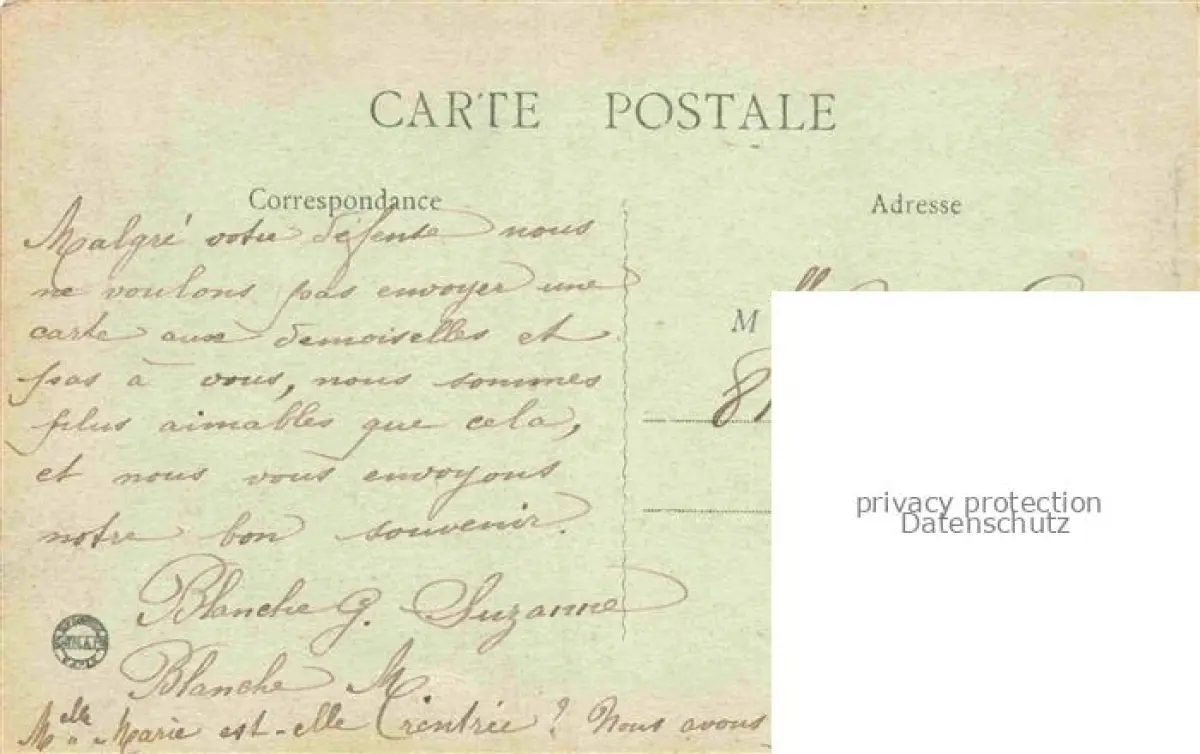 CARTE POSTALE
Correspondance
Adresse
Malgré votre défense nous
ne voulons pas envoyer une
carte aux demoiselles et
pas à vous, nous sommes
plus aimables que cela,
et nous vous envoyons
notre bon souvenir.
Blanche G. Suzanne
Blanche M.
Melle Marie est-elle rentrée ? Nous avons
M
81
privacy protection
Datenschutz